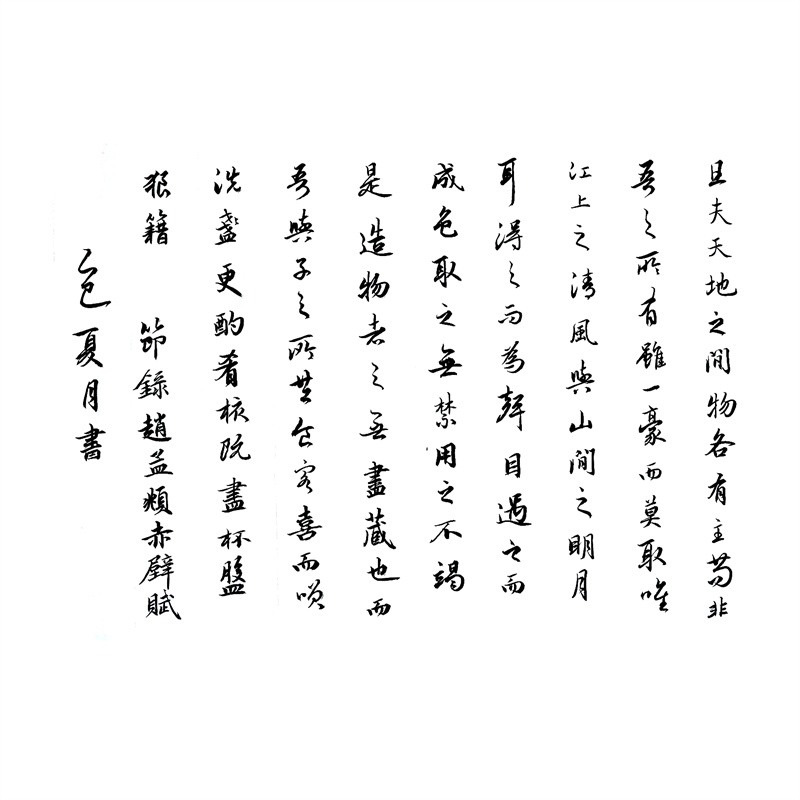 且夫天地之間物各有主苟非
吾之所有雖一豪而莫取唯
江上之清風與山間之明月
耳得之而為聲目遇之而
成色取之無禁用之不竭
是造物者之無盡藏也而
吾與子之所共食客喜而咲
洗盞更酌肴核既盡杯盤
狼籍 節錄趙孟頫赤壁賦
乙巳夏月書